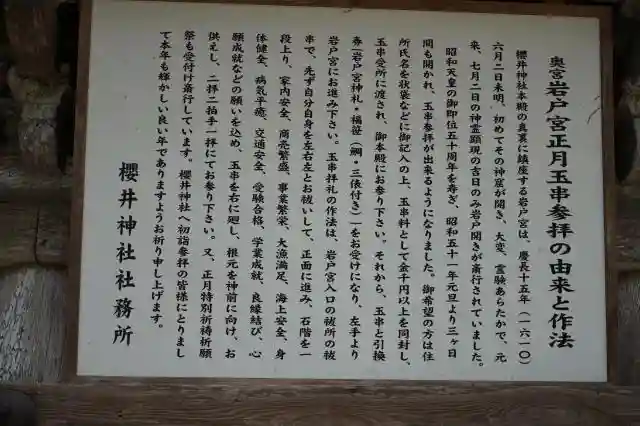 奥宮岩戸宮正月玉串参拝の由来と作法
櫻井神社本殿の真裏に鎮座する岩戸宮は、慶長十五年(一六一〇)
六月二日未明、初めてその神窟が開き、大変、霊験あらたかで、元
来、七月二日の神霊顕現の吉日のみ岩戸開きが斎行されていました。
昭和天皇の御即位五十周年を寿ぎ、昭和五十一年元旦より三ヶ日
間も開かれ、玉串参拝が出来るようになりました。御希望の方は住
所氏名を状袋などに御記入の上、玉串料として金千円以上を同封し、
玉串受所に渡され、御本殿にお参り下さい。それから、玉串と引換
券「岩戸宮神札・福笹(鯛・三俵付き)」をお受けになり、左手より
岩戸宮にお進み下さい。玉串拝礼の作法は、岩戸宮入口の祓所の祓
串で、先ず自分自身を左右左とお祓いして、正面に進み、石階を一
段上り、家内安全、商売繁盛、事業繁栄、大漁満足、海上安全、身
体健全、病気平癒、交通安全、受験合格、学業成就、良縁結び、心
願成就などの願いを込め、玉串を右に廻し、根元を神前に向け、お
供えし、二拝二拍手一拝にてお参り下さい。又、正月特別祈祷祈願
祭も受付け斎行しています。櫻井神社へ初詣参拝の皆様にとりまし
て本年も輝かしい良い年でありますようお祈り申し上げます。
櫻井神社社務所